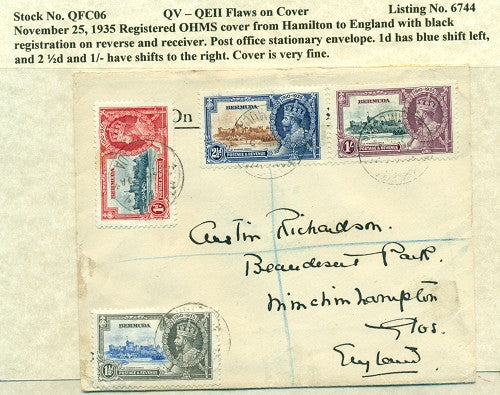 Stock No. QFC06 QV – QEII Flaws on Cover Listing No. 6744
November 25, 1935 Registered OHMS cover from Hamilton to England with black
registration on reverse and receiver. Post office stationary envelope. 1d has blue shift left,
and 2 ½d and 1/- have shifts to the right. Cover is very fine.
On
BERMUDA
1d
POSTAGE & REVENUE
BERMUDA
2½d
POSTAGE & REVENUE
BERMUDA
1/-
POSTAGE & REVENUE
Austin Richardson.
Beaudesert Park.
Minchinhampton
Glos.
England.
BERMUDA
1½d
POSTAGE & REVENUE